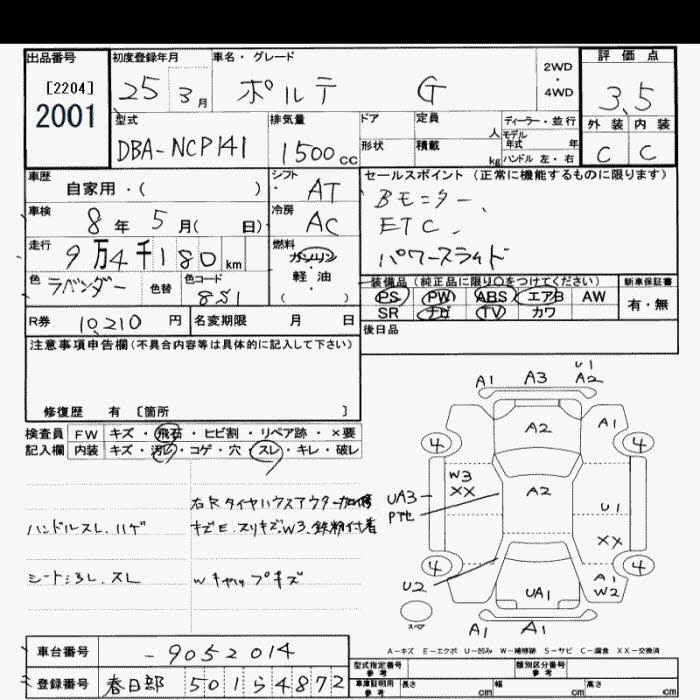 出品番号 初度登録年月 車名・グレード 評価点
[2204]
2001
25 3月 ポルテ G 2WD・4WD 3.5
型式 排気量 ドア 定員 人 ディーラー・並行 外装 内装
DBA-NCP141 1500cc 形状 積載 kg モデル年式 年 ハンドル 左・右 C C
車歴 シフト セールスポイント(正常に機能するものに限ります)
自家用・( ) AT Bモニター、
車検 冷房 ETC、
8年 5月( 日) AC パワースライド
走行 燃料
9万4千180km ガソリン
軽・油
( )
色 ラベンダー 色替 色コード 8S1
装備品(純正品に限り○をつけてください) 新車保証書
PS PW ABS エアB AW 有・無
SR ナビ TV カワ
R券 10,210円 名変期限 月 日 後日品
注意事項申告欄(不具合内容等は具体的に記入して下さい)
修復歴 有 〔箇所 〕
検査員 FW キズ・飛石・ヒビ割・リペア跡・×要
記入欄 内装 キズ・汚レ・コゲ・穴・スレ・キレ・破レ
右Rタイヤハウスアウター
ハンドルスレ、ハゲ キズE、スリキズ、W3、鉄粉付着
シートシミ、スレ Wキャップキズ
U1
A1 A3 A2
A2 A1
4 4
W3
XX
UA3 A2
U1
XX
4 4
U2
UA1 A1
W2
スペア
A1 A1
A-キズ E-エクボ U-凹み W-補修跡 S-サビ C-腐食 XX-交換済
車台番号 -9052014
登録番号 春日部 501 ら 4872
型式指定番号 参考 類別区分番号 参考
車庫証明用 参考 長さ cm 幅 cm 高さ cm